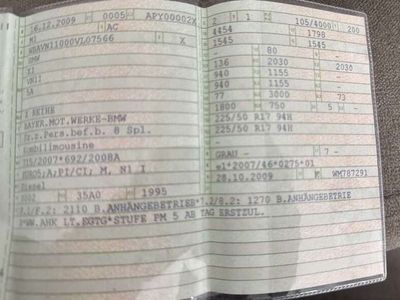 16.12.2009 0005 APY00002X
M1 AC
WBAVN11000VL07566 X
BMW
X1
VN11
5A
X REIHE
BAYER.MOT.WERKE-BMW
Fz.z.Pers.bef.b. 8 Spl.
Kombilimousine
715/2007*692/2008A
EURO5;A;PI/CI; M, N1 I
Diesel
0002 35A0 1995
7.1/8.2: 2110 B.ANHÄNGEBETRIEB*7.2/8.2: 1270 B.ANHÄNGEBETRIE
B*W.AHK LT.EGTG*STUFE PM 5 AB TAG ERSTZUL.
2 1 105/4000 200
4454 1798
1545 1545
- 80 -
136 2030 2030
940 1155 -
940 1155 -
77 3000 73
1800 750 5 -
225/50 R17 94H
225/50 R17 94H
-
GRAU - 7 -
e1*2007/46*0275*01
28.10.2009 K WM787291